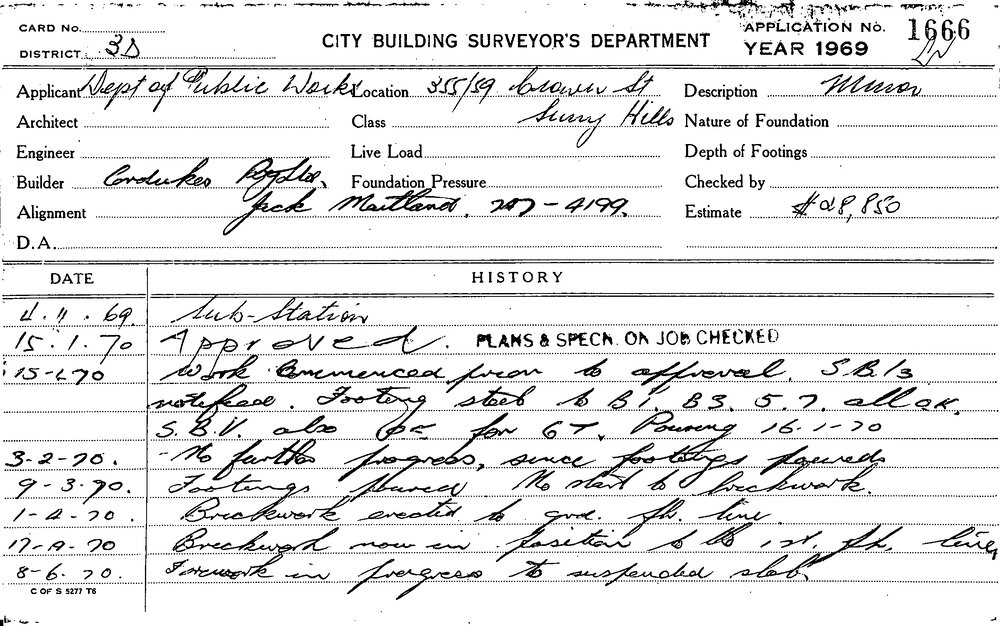 CARD No.
DISTRICT 3D
CITY BUILDING SURVEYOR'S DEPARTMENT
APPLICATION No. 1666
YEAR 1969
Applicant Dept of Public Works Location 355/59 Crown St Description Minor
Architect Class Surry Hills Nature of Foundation
Engineer Live Load Depth of Footings
Builder Cordukes Foundation Pressure Checked by
Alignment Jack Maitland. 207-4199. Estimate $28,850
D.A.
DATE HISTORY
4.11.69 Sub-Station
15.1.70 Approved. PLANS & SPECN. ON JOB CHECKED
15-1-70 Work Commenced prior to approval. S.B.
notified. Footing steel to B1. B3. 5.7. all ok.
S.B.V. also for 6T. Pouring 16-1-70
3-2-70. No further progress, since footings poured
9-3-70. Footings poured No start to brickwork.
1-4-70. Brickwork erected to grd. flr. line.
17-4-70 Brickwork now in position to 1st. flr. line,
8-6.70. Formwork in progress to suspended slab.
C OF S 5277 T6